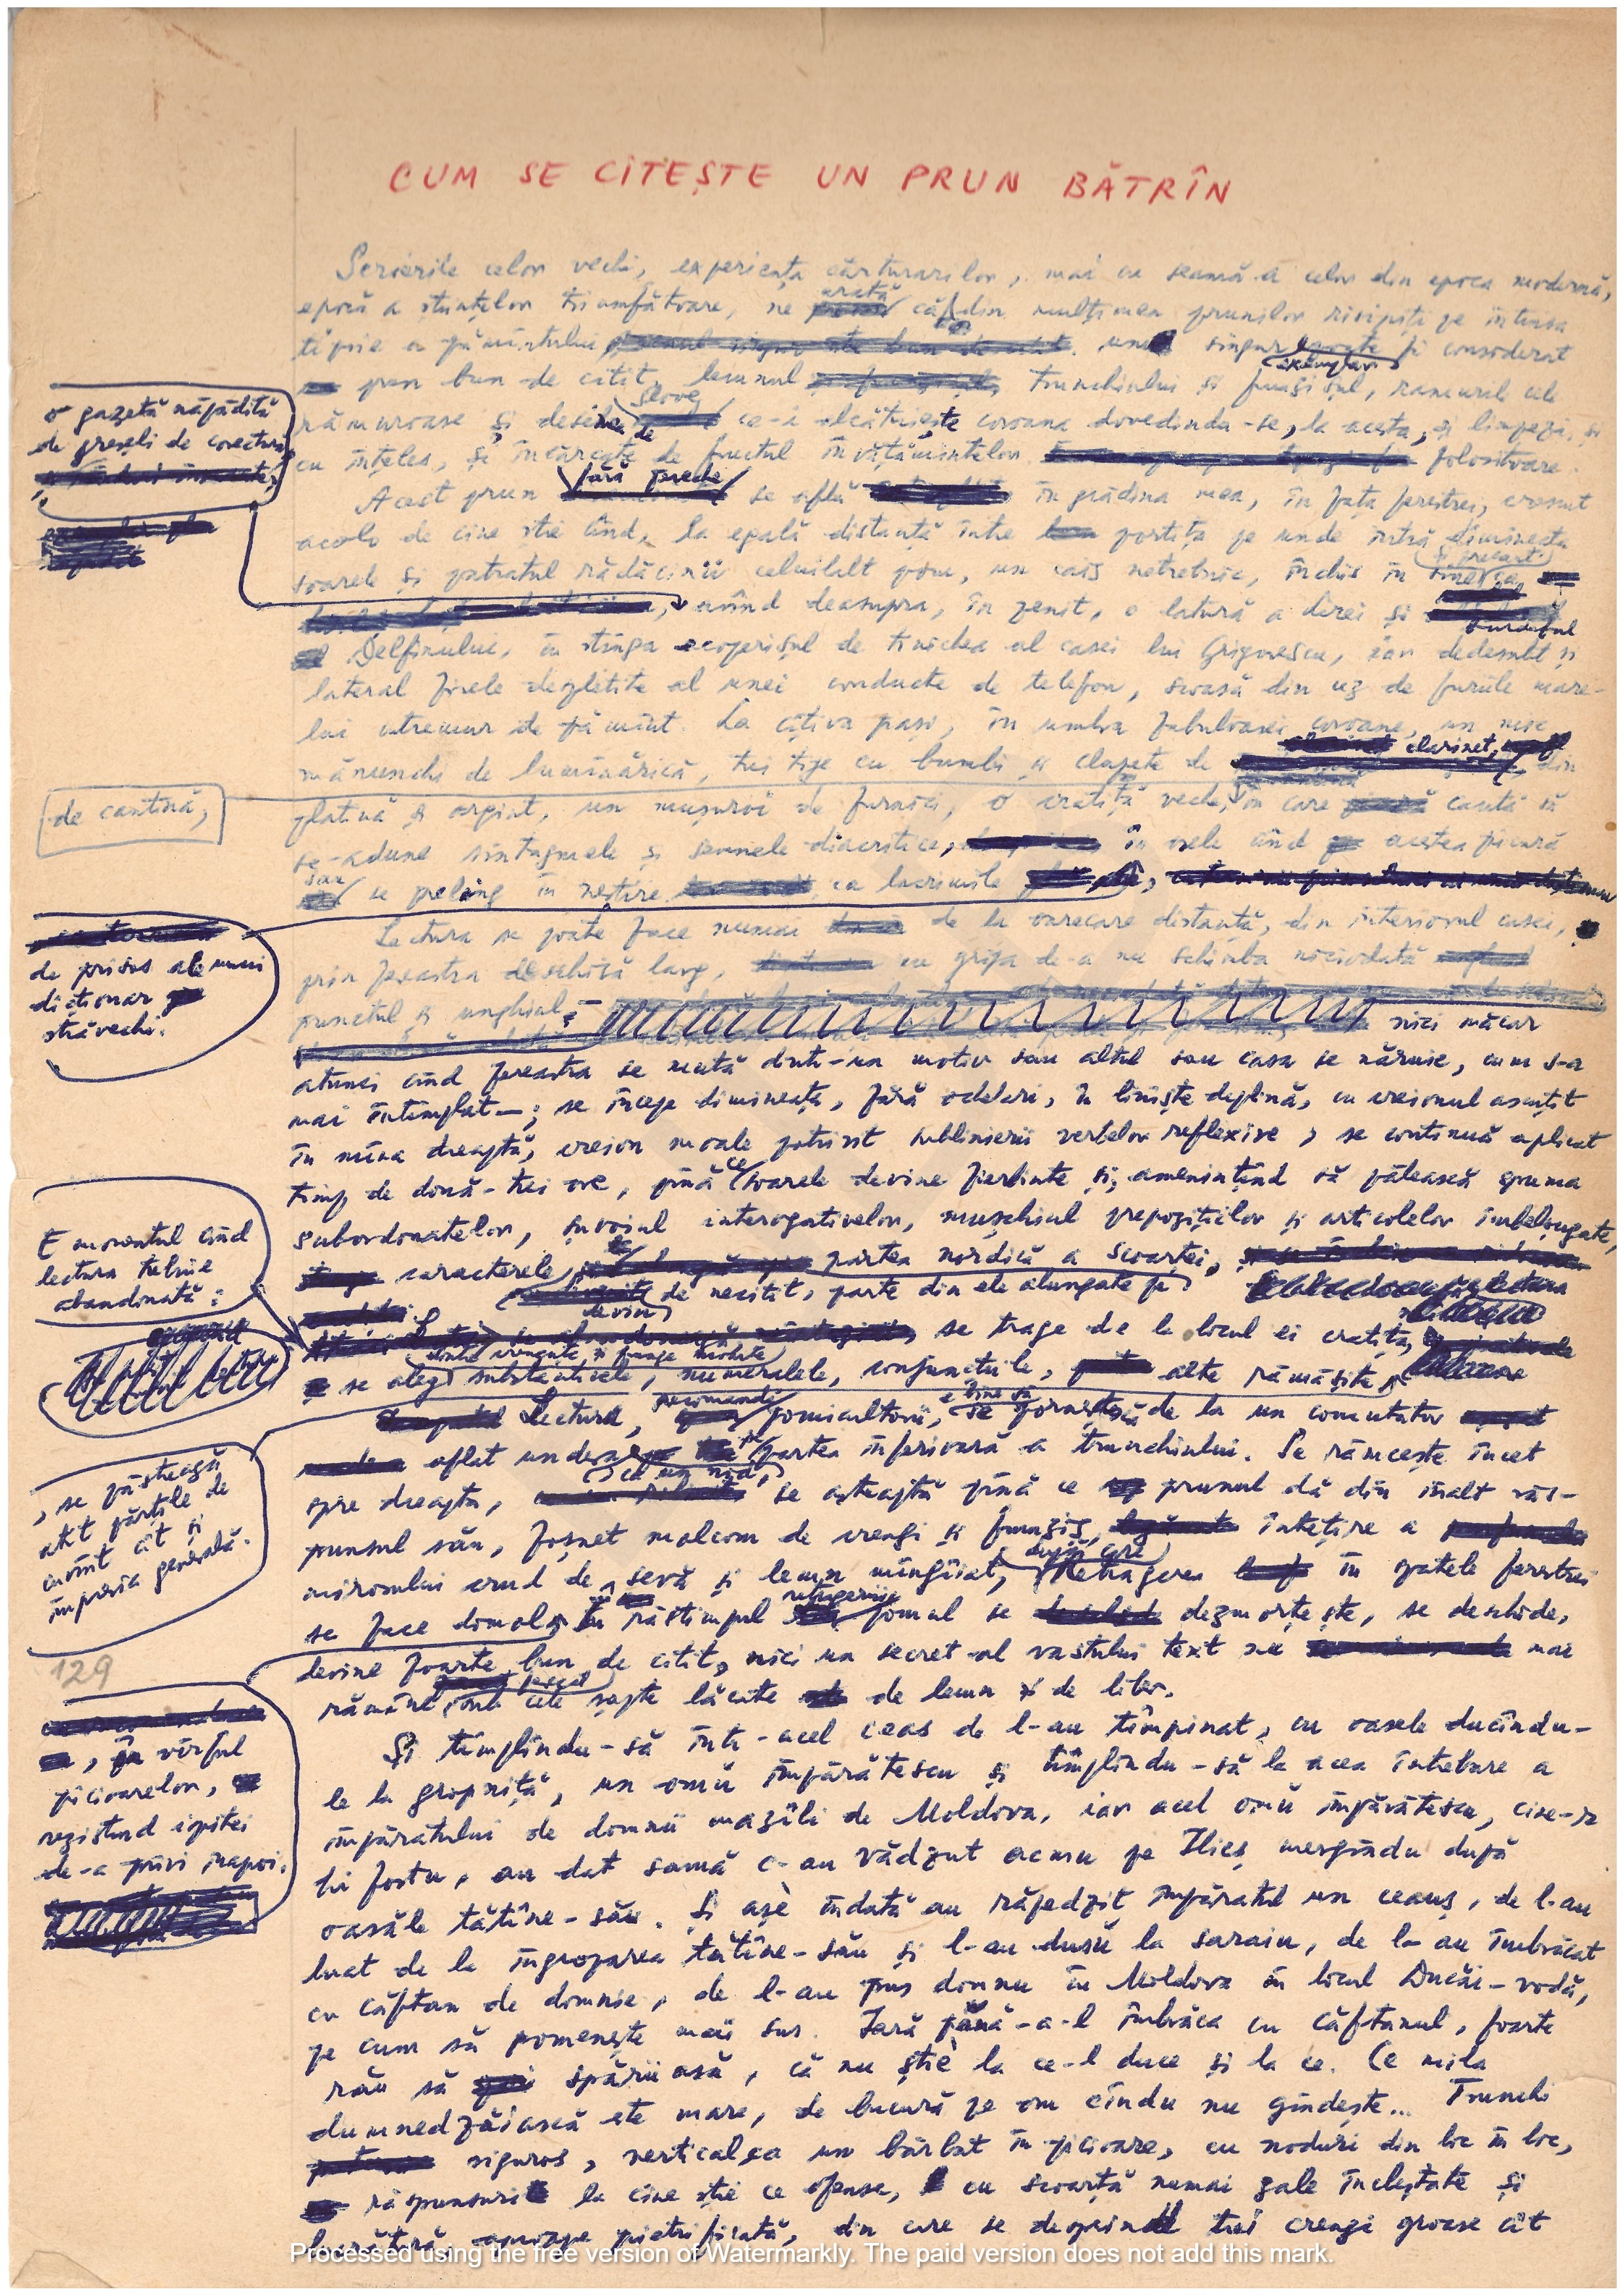 CUM SE CITEȘTE UN PRUN BĂTRÎN
Scrierile celor vechi, experiența cărturarilor, mai cu seamă a celor din epoca modernă,
epocă a științelor triumfătoare, ne arată că din mulțimea prunilor risipiți pe întinsa
tipsie a pămîntului unul singur poate fi considerat
exemplar
prun bun de citit, lemnul trunchiului și frunzișul, ramurile cele
slove
rămuroase și desele ce-i alcătuiește coroana dovedindu-se, la acesta, și limpezi, și
cu înțeles, și încărcate de fructul învățămintelor folositoare.
o gazetă năpădită
de greșeli de corectură
Acest prun fără preche se află în grădina mea, în fața ferestrei, crescut
acolo de cine știe cînd, la egală distanță între portița pe unde intră dimineața
soarele și pătratul rădăcinii celuilalt pom, un cais netrebnic, închis în sine
și precar
avînd deasupra, în zenit, o latură a Lirei și
Delfinului, în stînga acoperișul de tinichea al casei lui Grigorescu, iar dedesubt și
lateral firele despletite al unei conducte de telefon, scoasă din uz de furiile mare-
lui cutremur de pămînt. La cîțiva pași, în umbra fabuloasei coroane, un mic
mănunchi de lumînărică, trei tije cu bumbi și clapete de clarinet, din
de cantină,
platină și argint, un mușuroi de furnici, o cratiță veche, în care caută să
se-adune sintagmele și semnele diacritice, în orele cînd acestea picură
sau se preling în neștire ca lacrimile
de prisos ale unui
dicționar
străvechi.
Lectura se poate face numai de la oarecare distanță, din interiorul casei,
prin fereastra deschisă larg, cu grija de-a nu schimba niciodată
punctul și unghiul – nici măcar
atunci cînd fereastra se mută dintr-un motiv sau altul sau casa se năruie, cum s-a
mai întîmplat –; se începe dimineața, fără ochelari, în liniște deplină, cu creionul ascuțit
în mîna dreaptă, creion moale potrivit sublinierii verbelor reflexive, se continuă aplicat
timp de două-trei ore, pînă ce soarele devine fierbinte și, amenințînd să pălească spuma
subordonatelor, șuvoiul interogativelor, mușchiul prepozițiilor și articolelor îmbelșugate,
caracterele partea nordică a scoarței,
devin de necitit, parte din ele alungate pe
E momentul cînd
lectura trebuie
abandonată:
se trage de la locul ei cratița,
se aleg dintre crenguțe și frunze substantivele, numeralele, conjuncțiile, alte rămășițe
, se păstrează
atît părțile de
cuvînt cît și
impresia generală.
Lectura, recomandă pomicultorii, e bine să se pornească de la un comutator
aflat undeva pe partea inferioară a trunchiului. Se răsucește încet
spre dreapta, ca un nod, se așteaptă pînă ce prunul dă din înalt răs-
punsul său, foșnet molcom de crengi și frunziș, întețire a
mirosului crud de sevă și lemn mîngîiat, după care retragerea în spatele ferestrei
se face domol, în răstimpul retragerii pomul se dezmorțește, se deschide,
devine foarte bun de citit, nici un secret al vastului text nu mai
rămîne sub cele șapte lăcate de lemn și de liter.
129
, în vîrful
picioarelor,
rezistînd ispitei
de-a privi înapoi.
Și tîmplîndu-să într-acel ceas de l-au tîmpinat, cu oasele ducîndu-
le la gropniță, un omŭ împărătescu și tîmplîndu-să la acea întrebare a
împăratului de domnii mazîli de Moldova, iar acel omŭ împărătescu, cine-și
hi fostu, au dat samă c-au vădzut acmu pe Ilieș mergîndu după
oasăle tătîne-său. Și așè îndată au răpedzit împăratul un ceauș, de l-au
luat de la îngroparea tătîne-său și l-au dusŭ la saraiu, de l-au îmbrăcat
cu căftan de domnie, de l-au pus domnu în Moldova în locul Ducăi-vodă,
pe cum să pomenește mai sus. Iară pănă-a-l îmbrăca cu căftanul, foarte
rău să spării asă, că nu știè la ce-l duce și la ce. Ce mila
dumnedzăiască este mare, de bucură pe om cîndu nu gîndește... Trunchi
viguros, vertical, ca un bărbat în picioare, cu noduri din loc în loc,
răspunsuri la cine știe ce ofense, cu scoarță numai zale încleștate și
lucrătură aproape pietrificată, din care se desprind trei crengi groase cît
Processed using the free version of Watermarkly. The paid version does not add this mark.